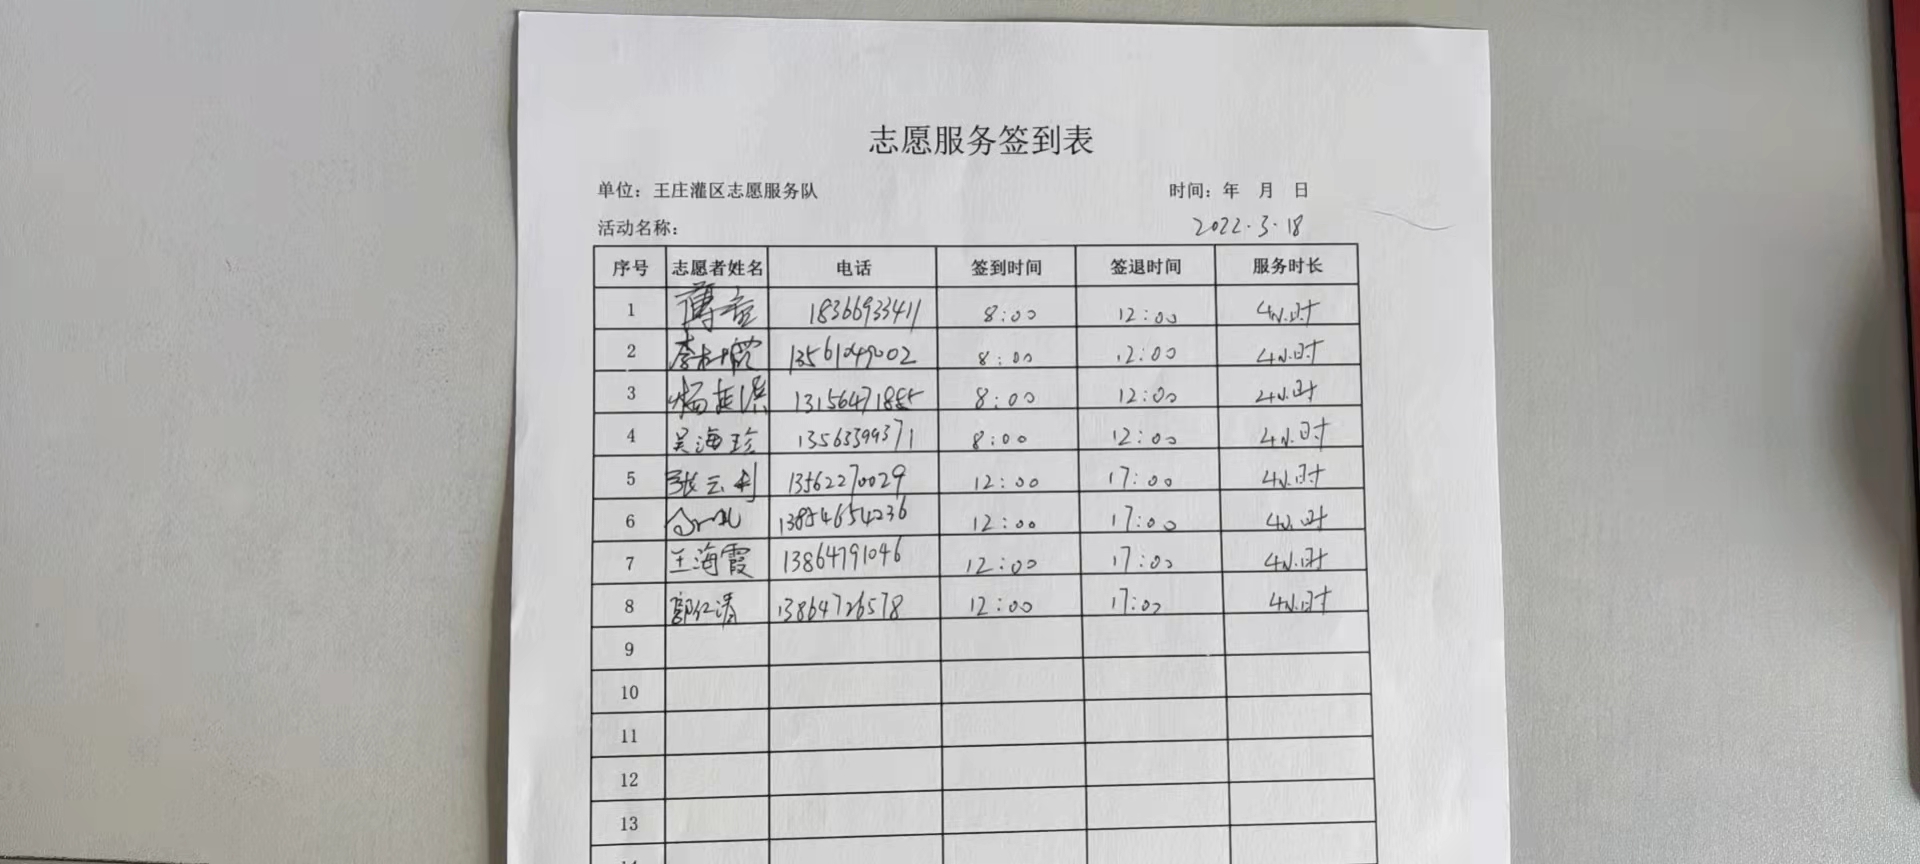 志愿服务签到表
单位：王庄灌区志愿服务队 时间：年 月 日
活动名称： 2022.3.18
序号 志愿者姓名 电话 签到时间 签退时间 服务时长
1 18366933411 8:00 12:00 4小时
2 13561049002 8:00 12:00 4小时
3 8:00 12:00 4小时
4 吴海珍 13563399371 8:00 12:00 4小时
5 张云利 13562270029 12:00 17:00 4小时
6 13854654236 12:00 17:00 4小时
7 王海霞 13864791046 12:00 17:00 4小时
8 郭仁清 13864726578 12:00 17:00 4小时
9
10
11
12
13